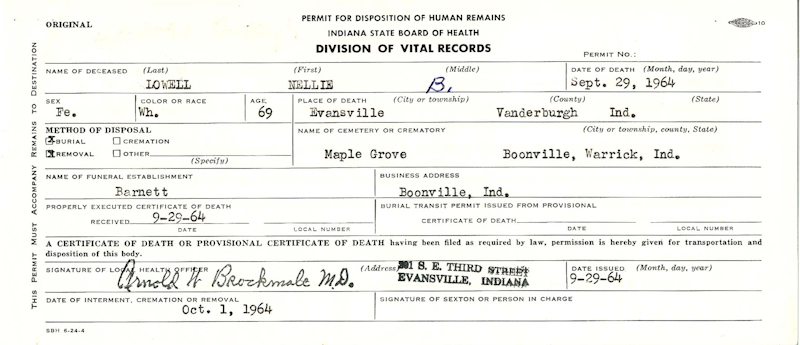 ORIGINAL
PERMIT FOR DISPOSITION OF HUMAN REMAINS
INDIANA STATE BOARD OF HEALTH
DIVISION OF VITAL RECORDS
10
PERMIT NO.:
THIS PERMIT MUST ACCOMPANY REMAINS TO DESTINATION
NAME OF DECEASED (Last) (First) (Middle) DATE OF DEATH (Month, day, year)
LOWELL NELLIE B. Sept. 29, 1964
SEX COLOR OR RACE AGE PLACE OF DEATH (City or township) (County) (State)
Fe. Wh. 69 Evansville Vanderburgh Ind.
METHOD OF DISPOSAL NAME OF CEMETERY OR CREMATORY (City or township, county, State)
X BURIAL CREMATION
X REMOVAL OTHER Maple Grove Boonville, Warrick, Ind.
(Specify)
NAME OF FUNERAL ESTABLISHMENT BUSINESS ADDRESS
Barnett Boonville, Ind.
PROPERLY EXECUTED CERTIFICATE OF DEATH BURIAL TRANSIT PERMIT ISSUED FROM PROVISIONAL
RECEIVED 9-29-64 CERTIFICATE OF DEATH
DATE LOCAL NUMBER DATE LOCAL NUMBER
A CERTIFICATE OF DEATH OR PROVISIONAL CERTIFICATE OF DEATH having been filed as required by law, permission is hereby given for transportation and
disposition of this body.
SIGNATURE OF LOCAL HEALTH OFFICER (Address) DATE ISSUED (Month, day, year)
Arnold W Brockmole M.D. 201 S. E. THIRD STREET
EVANSVILLE, INDIANA 9-29-64
DATE OF INTERMENT, CREMATION OR REMOVAL SIGNATURE OF SEXTON OR PERSON IN CHARGE
Oct. 1, 1964
SBH 6-24-4